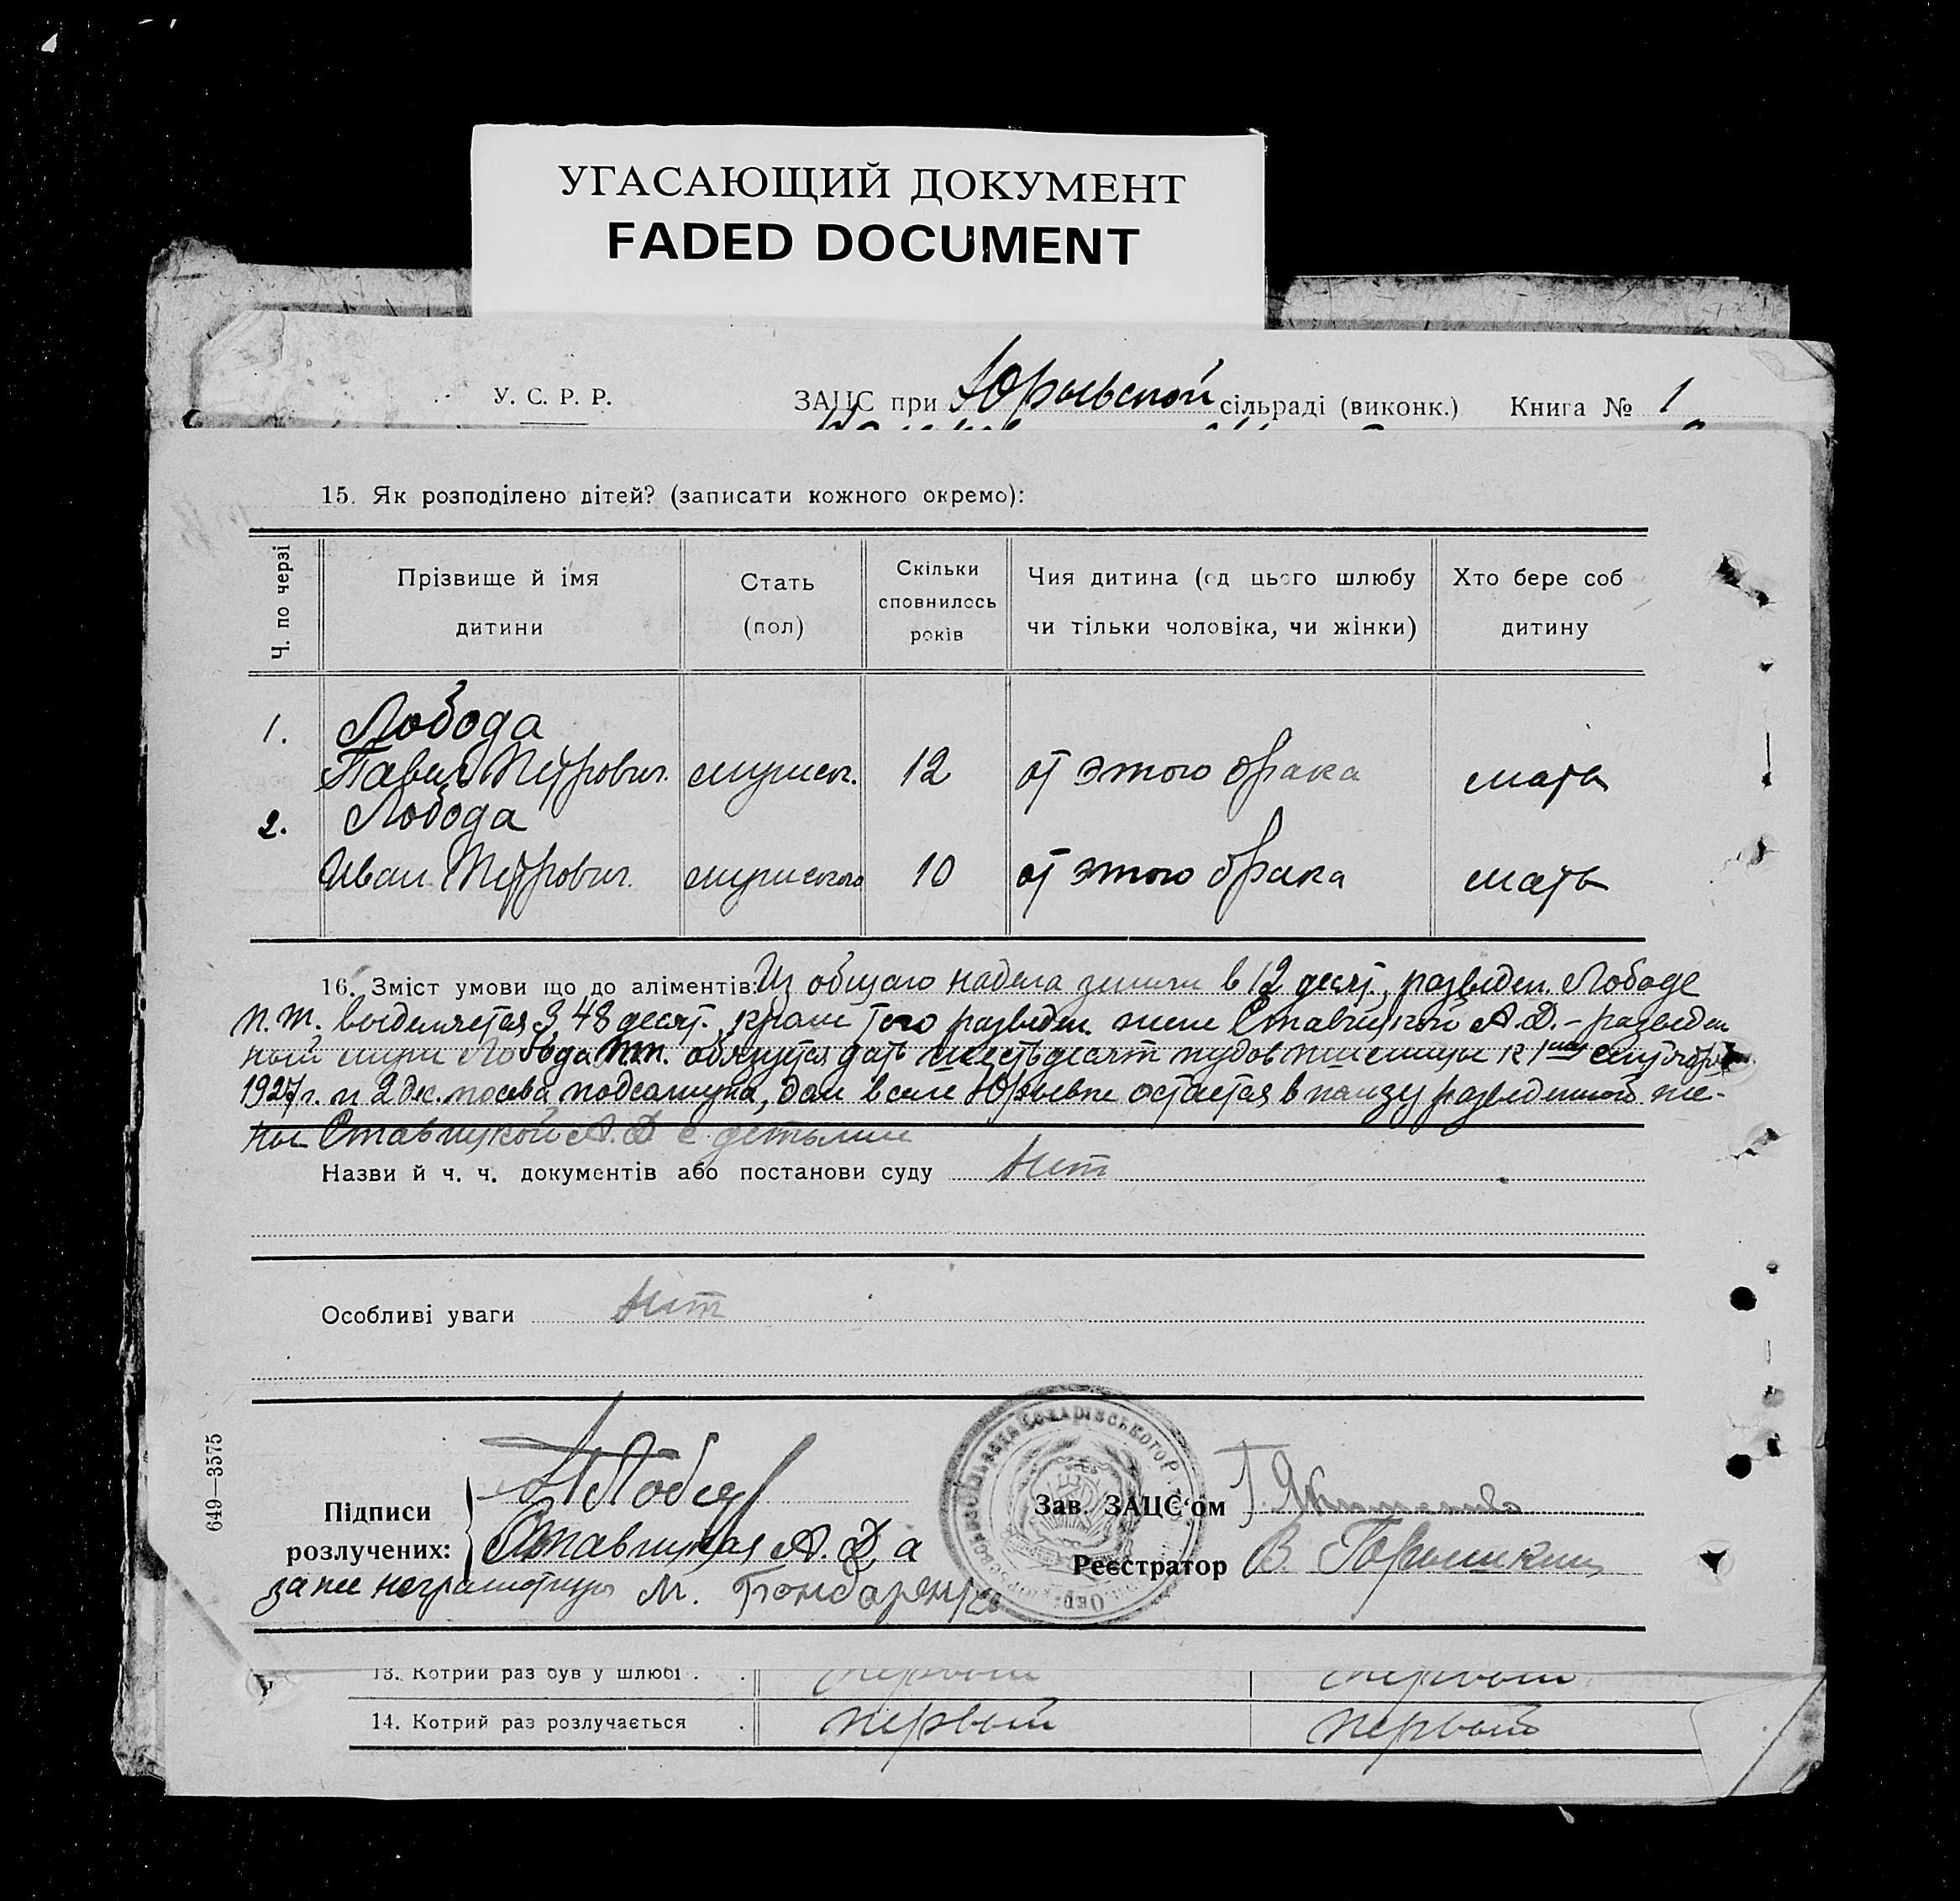 УГАСАЮЩИЙ ДОКУМЕНТ
FADED DOCUMENT
У. С. Р. Р.
ЗАЦС при Юрьевской сільраді (виконк.) Книга № 1
15. Як розподілено дітей? (записати кожного окремо):
Ч. по черзі
Прізвище й імя дитини
Стать (пол)
Скільки сповнилось років
Чия дитина (од цього шлюбу чи тільки чоловіка, чи жінки)
Хто бере соб дитину
1. Лобода
Павел Петрович. мужск. 12 от этого брака мать
2. Лобода
Иван Петрович. мужского 10 от этого брака мать
16. Зміст умови що до аліментів: Из общаго надела земли в 12 десят., разведен. Лободе
П.т. выделяется 3,48 десят. кроме того разведен. жене Ставицкой А.Д. – разведен
ный муж Лобода П.т. обязуется дать шестьдесят пудов пшеницы к 1му сентября
1927 г. и 2 дес. посева подсолнуха, дом в селе Юрьевке остается в пользу разведенной же-
ны Ставицкой А. Д с детьми
Назви й ч. ч. документів або постанови суду нет
Особливі уваги нет
649—3575
Підписи розлучених:
Ставицкая А. Д, а
за нее неграмотную М. Бондаренко
Зав. ЗАЦС'ом
Реєстратор В.
13. Котрий раз був у шлюбі . . первый первый
14. Котрий раз розлучається . первый первый